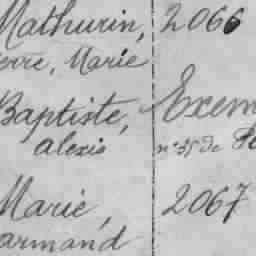 Mathurin, 2066
Pierre, Marie
Baptiste, Exem
alexis n° 35 de
Marie, 2067
armand